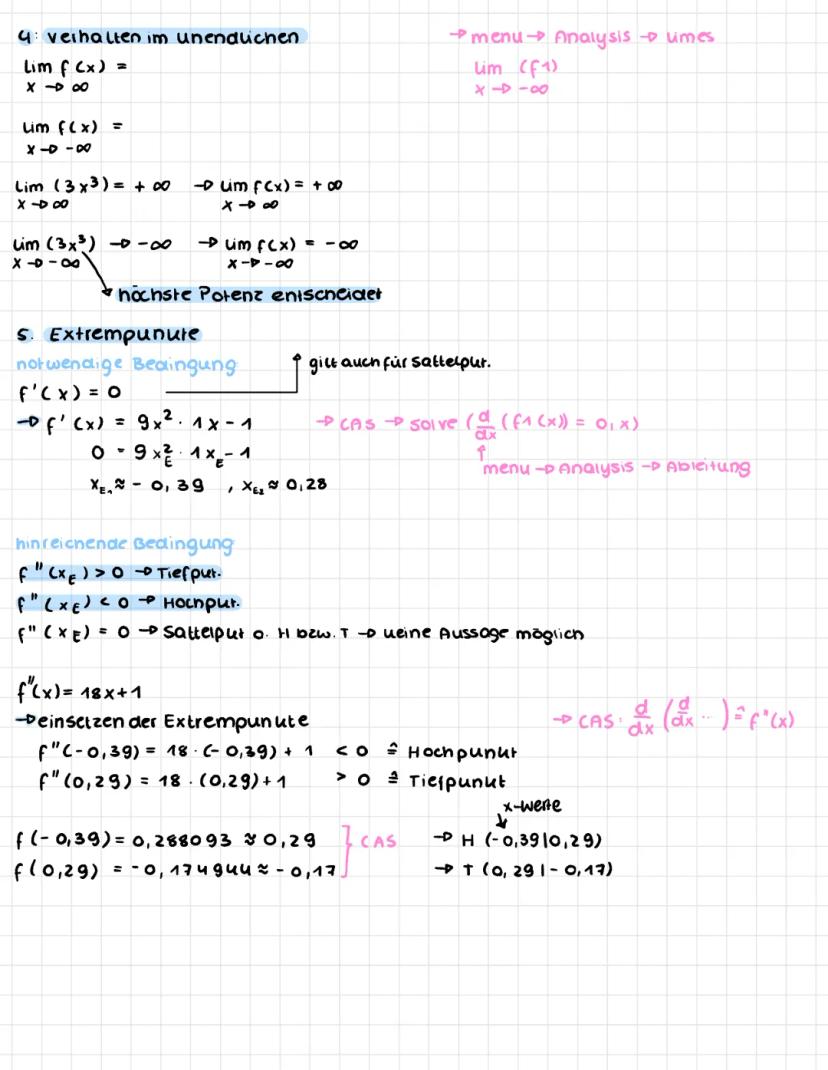 4: Verhalten im unendlichen
→ menu → Analysis → Limes
lim f(x) =
x → ∞
lim (f1)
x → -∞
lim f(x) =
x → -∞
lim (3x³) = + ∞ → lim f(x) = + ∞
x → ∞ x → ∞
lim (3x³) → -∞ → lim f(x) = -∞
x → -∞ x → -∞
höchste Potenz entscheidet
5. Extrempunkte
notwendige Bedingung
gilt auch für Sattelpkt.
f'(x) = 0
→ f'(x) = 9x² · 1x - 1
→ CAS → solve (d/dx (f1(x)) = 0, x)
0 = 9x_E² · 1x_E - 1
menu → Analysis → Ableitung
x_E1 ≈ - 0,39 , x_E2 ≈ 0,28
hinreichende Bedingung
f''(x_E) > 0 → Tiefpkt.
f''(x_E) < 0 → Hochpkt.
f''(x_E) = 0 → Sattelpkt o. H bzw. T → keine Aussage möglich
f''(x) = 18x+1
→ einsetzen der Extrempunkte
→ CAS: d/dx (d/dx ...) ≙ f''(x)
f''(-0,39) = 18 · (-0,39) + 1 < 0 ≙ Hochpunkt
f''(0,29) = 18 · (0,29) + 1 > 0 ≙ Tiefpunkt
x-Werte
f(-0,39) = 0,288093 ≈ 0,29 } CAS → H (-0,39|0,29)
f(0,29) = -0,174944 ≈ -0,17 → T (0,29|-0,17)